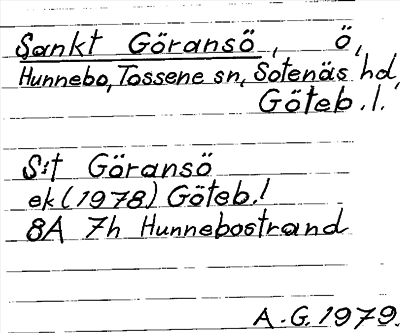 Sankt Göransö, ö,
Hunnebo, Tossene sn, Sotenäs hd,
Göteb. l.
S:t Göransö
ek (1978) Göteb. l
8A 7h Hunnebostrand
A. G. 1979.